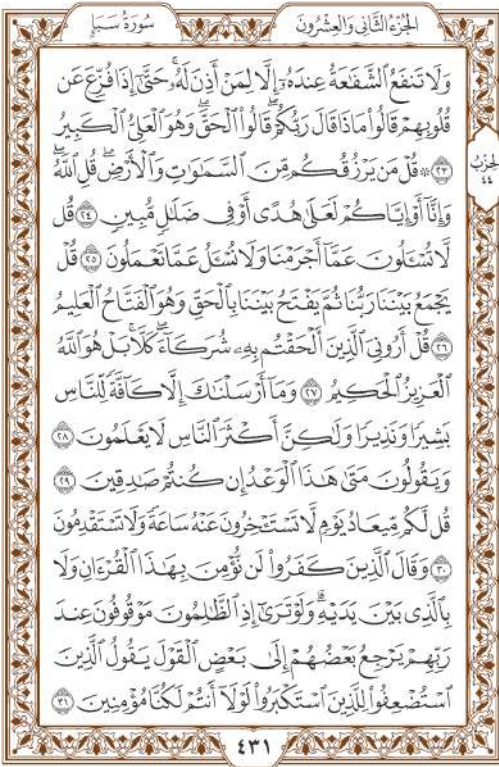 الجُزْءُ الثَّانِي وَالعِشْرُونَ
سُورَةُ سَبَإٍ
وَلَا تَنفَعُ ٱلشَّفَٰعَةُ عِندَهُۥٓ إِلَّا لِمَنْ أَذِنَ لَهُۥ ۚ حَتَّىٰٓ إِذَا فُزِّعَ عَن
قُلُوبِهِمْ قَالُوا۟ مَاذَا قَالَ رَبُّكُمْ ۖ قَالُوا۟ ٱلْحَقَّ ۖ وَهُوَ ٱلْعَلِىُّ ٱلْكَبِيرُ
٢٣ ۞ قُلْ مَن يَرْزُقُكُم مِّنَ ٱلسَّمَٰوَٰتِ وَٱلْأَرْضِ ۖ قُلِ ٱللَّهُ ۖ
الحِزْبُ
٤٤
وَإِنَّآ أَوْ إِيَّاكُمْ لَعَلَىٰ هُدًى أَوْ فِى ضَلَٰلٍ مُّبِينٍ ٢٤ قُل
لَّا تُسْـَٔلُونَ عَمَّآ أَجْرَمْنَا وَلَا نُسْـَٔلُ عَمَّا تَعْمَلُونَ ٢٥ قُلْ
يَجْمَعُ بَيْنَنَا رَبُّنَا ثُمَّ يَفْتَحُ بَيْنَنَا بِٱلْحَقِّ وَهُوَ ٱلْفَتَّاحُ ٱلْعَلِيمُ
٢٦ قُلْ أَرُونِىَ ٱلَّذِينَ أَلْحَقْتُم بِهِۦ شُرَكَآءَ ۖ كَلَّا ۚ بَلْ هُوَ ٱللَّهُ
ٱلْعَزِيزُ ٱلْحَكِيمُ ٢٧ وَمَآ أَرْسَلْنَٰكَ إِلَّا كَآفَّةً لِّلنَّاسِ
بَشِيرًا وَنَذِيرًا وَلَٰكِنَّ أَكْثَرَ ٱلنَّاسِ لَا يَعْلَمُونَ ٢٨
وَيَقُولُونَ مَتَىٰ هَٰذَا ٱلْوَعْدُ إِن كُنتُمْ صَٰدِقِينَ ٢٩
قُل لَّكُم مِّيعَادُ يَوْمٍ لَّا تَسْتَـْٔخِرُونَ عَنْهُ سَاعَةً وَلَا تَسْتَقْدِمُونَ
٣٠ وَقَالَ ٱلَّذِينَ كَفَرُوا۟ لَن نُّؤْمِنَ بِهَٰذَا ٱلْقُرْءَانِ وَلَا
بِٱلَّذِى بَيْنَ يَدَيْهِ ۗ وَلَوْ تَرَىٰٓ إِذِ ٱلظَّٰلِمُونَ مَوْقُوفُونَ عِندَ
رَبِّهِمْ يَرْجِعُ بَعْضُهُمْ إِلَىٰ بَعْضٍ ٱلْقَوْلَ يَقُولُ ٱلَّذِينَ
ٱسْتُضْعِفُوا۟ لِلَّذِينَ ٱسْتَكْبَرُوا۟ لَوْلَآ أَنتُمْ لَكُنَّا مُؤْمِنِينَ ٣١
٤٣١